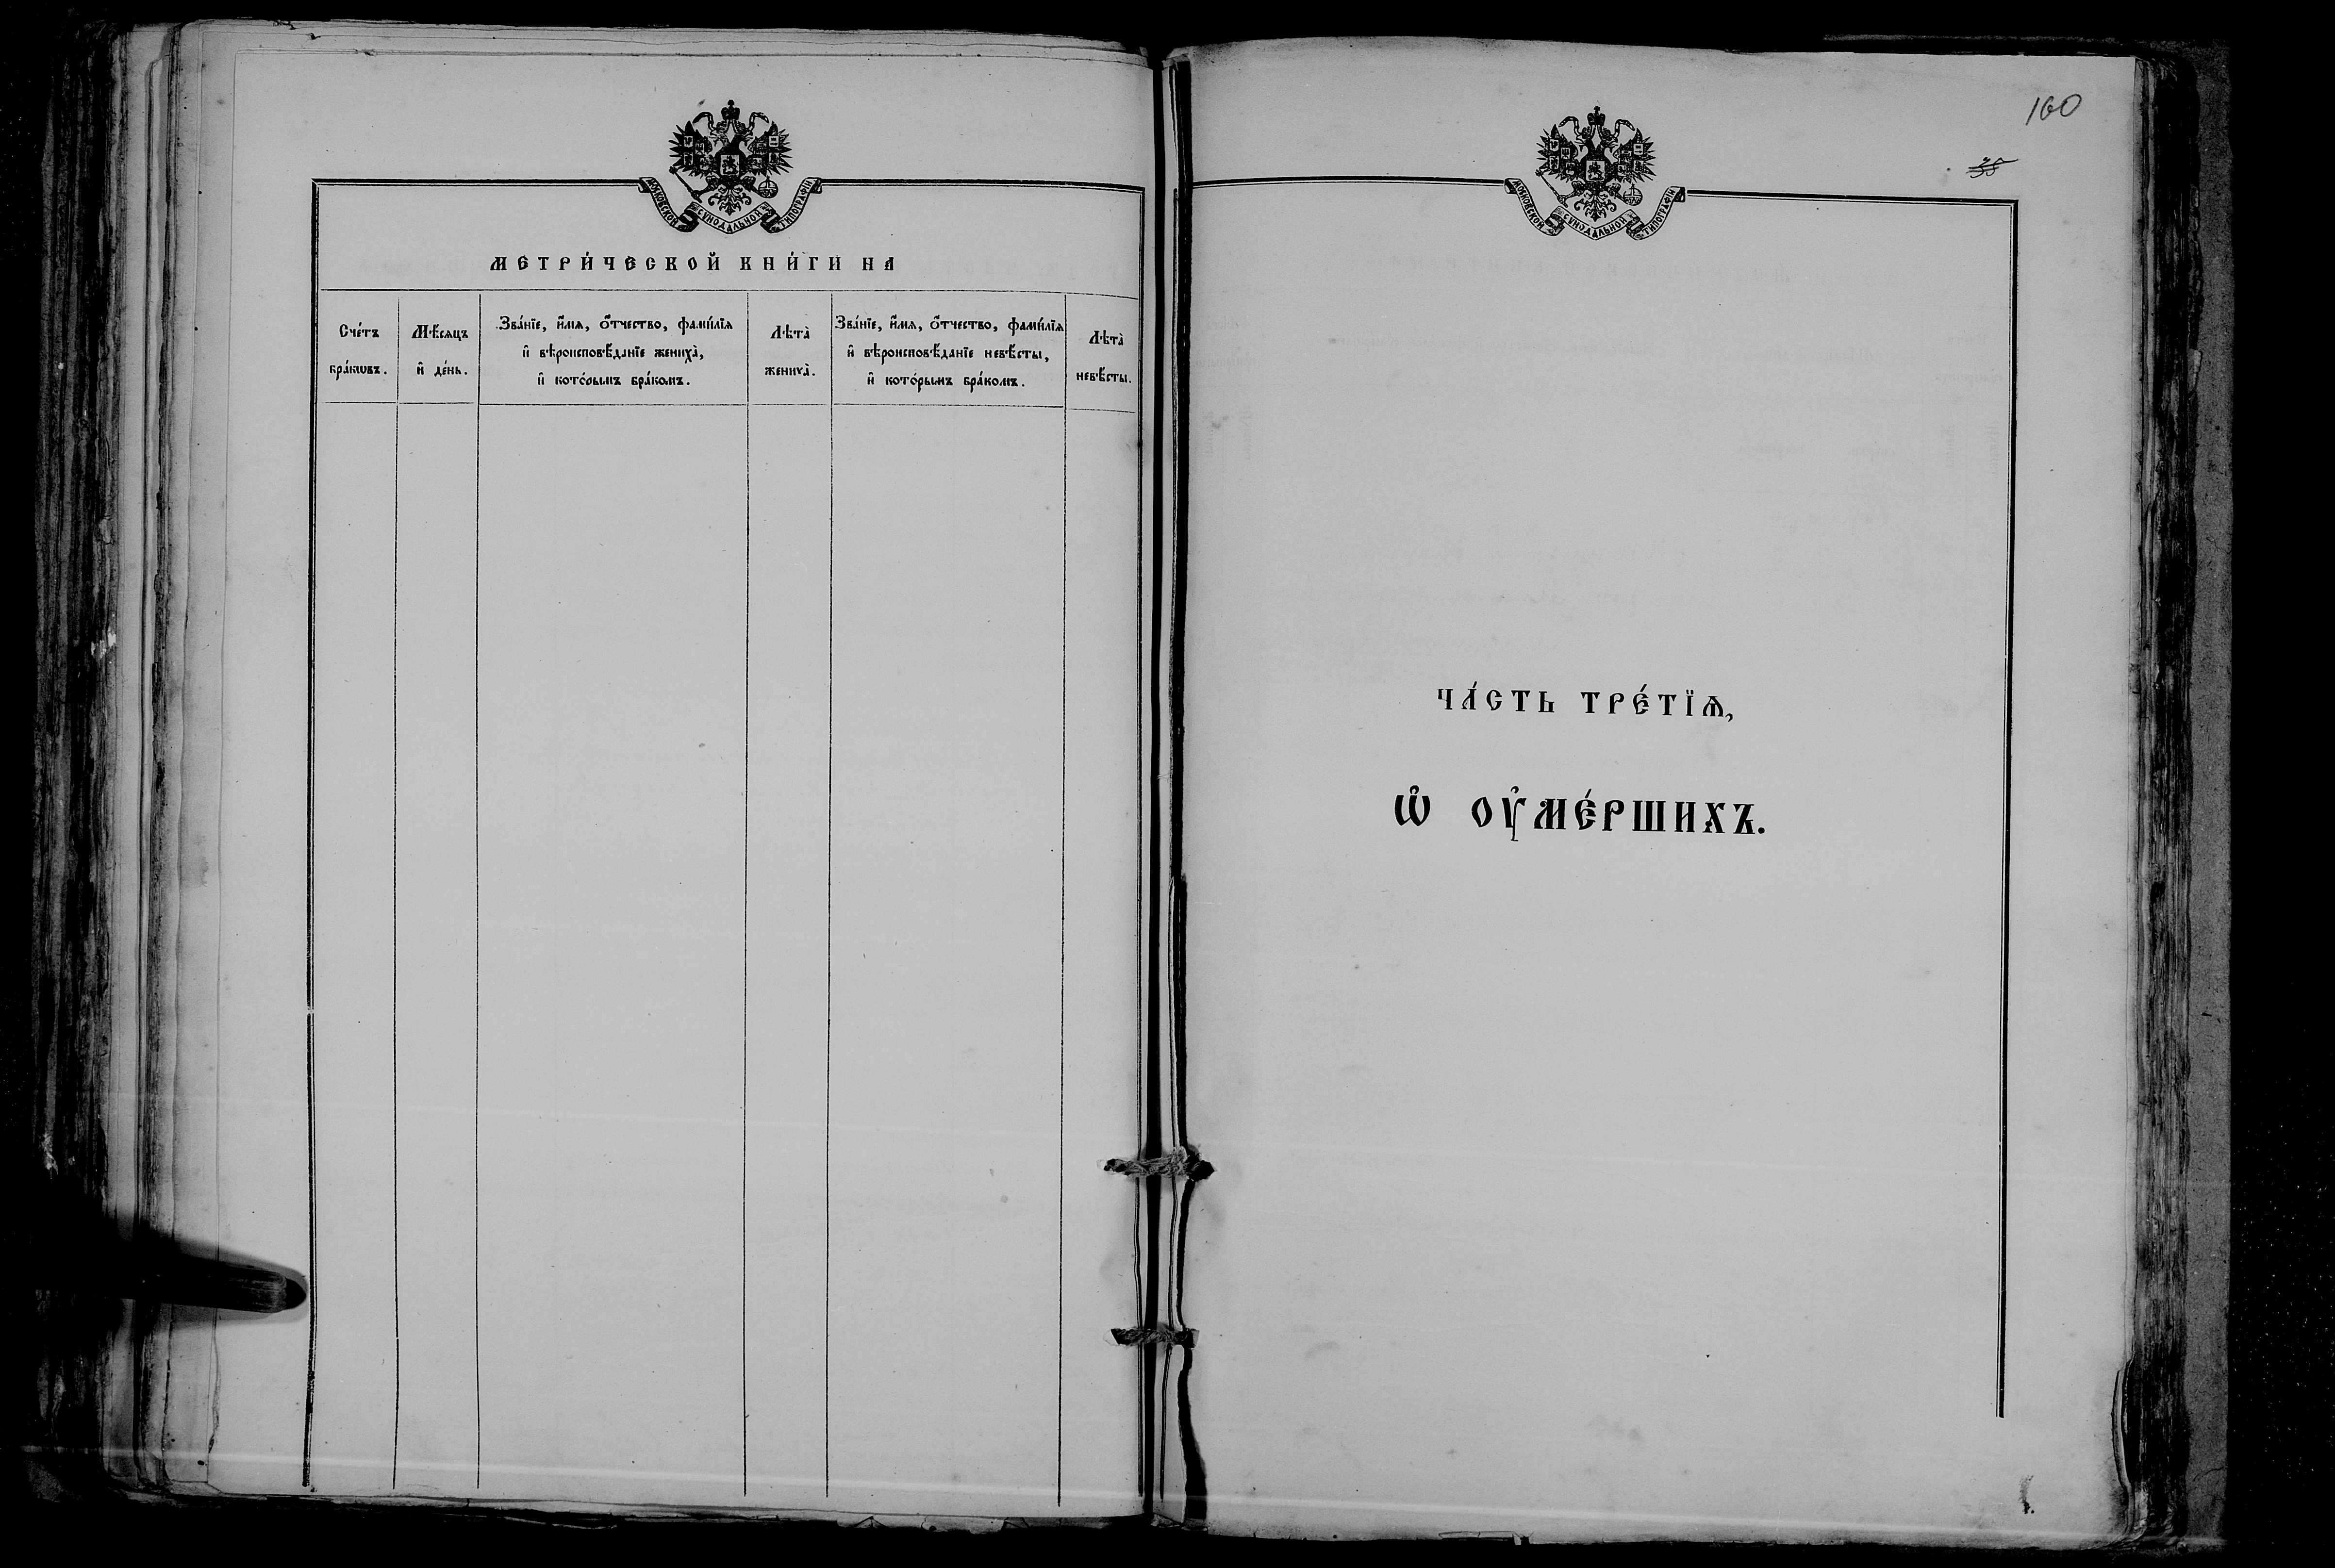 МОСКОВСКОЙ СѴНОДАЛЬНОЙ ТИПОГРАФІИ
МЕТРИ́ЧЕСКОЙ КНИ́ГИ НА
Сче́тъ
бра́кѡвъ.
Мѣ́сѧцъ
и҆ де́нь.
Зва́нїе, и҆́мѧ, ѻ҆́тчество, фами́лїѧ
и҆ вѣроисповѣ́данїе жениха̀,
и҆ кото́рымъ бра́комъ.
Лѣта̀
жениха̀.
Зва́нїе, и҆́мѧ, ѻ҆́тчество, фами́лїѧ
и҆ вѣроисповѣ́данїе невѣ́сты,
и҆ кото́рымъ бра́комъ.
Лѣта̀
невѣ́сты.
160
МОСКОВСКОЙ СѴНОДАЛЬНОЙ ТИПОГРАФІИ
ЧА́СТЬ ТРЕ́ТЇѦ,
Ѡ҆ ОУ҆МЕ́РШИХЪ.